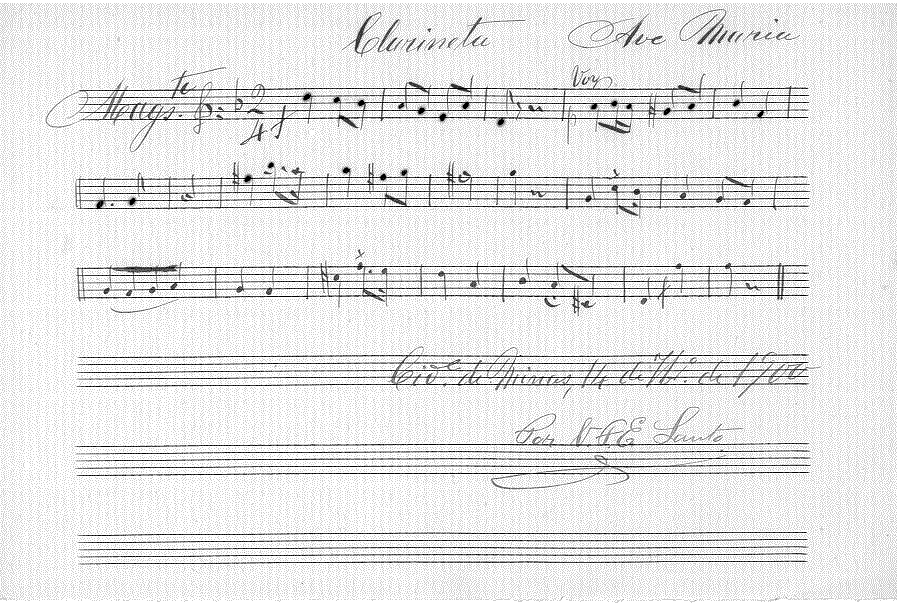 Clarineta Ave Maria
Mags.te 2 4 f
Voz
f
Cid.e de Minas, 14 de 7br.o de 1900
Por V. A. E Santo